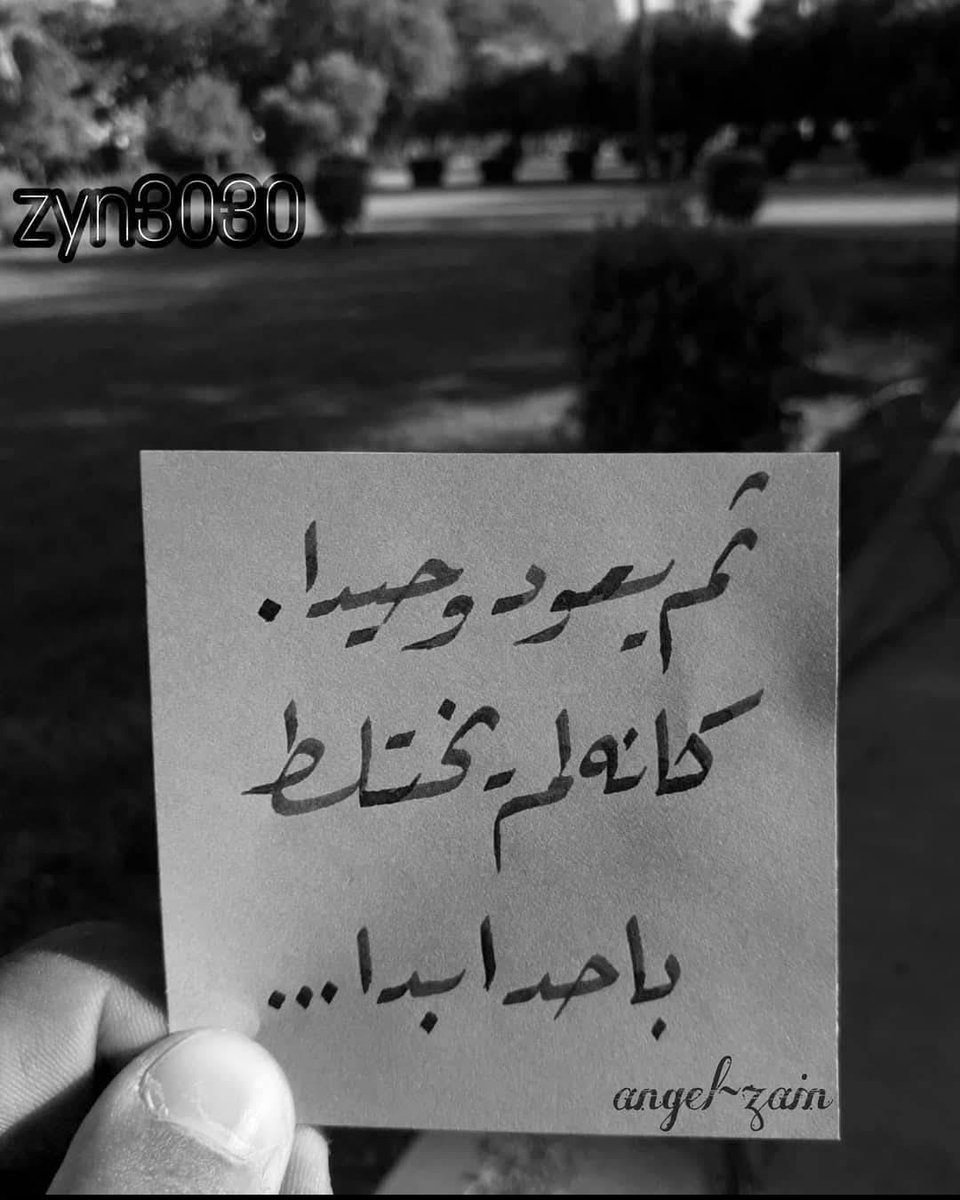 zyn3030
ثم يعود وحيدا.
كانه لم يختلط
باحد ابدا...
angel~zain